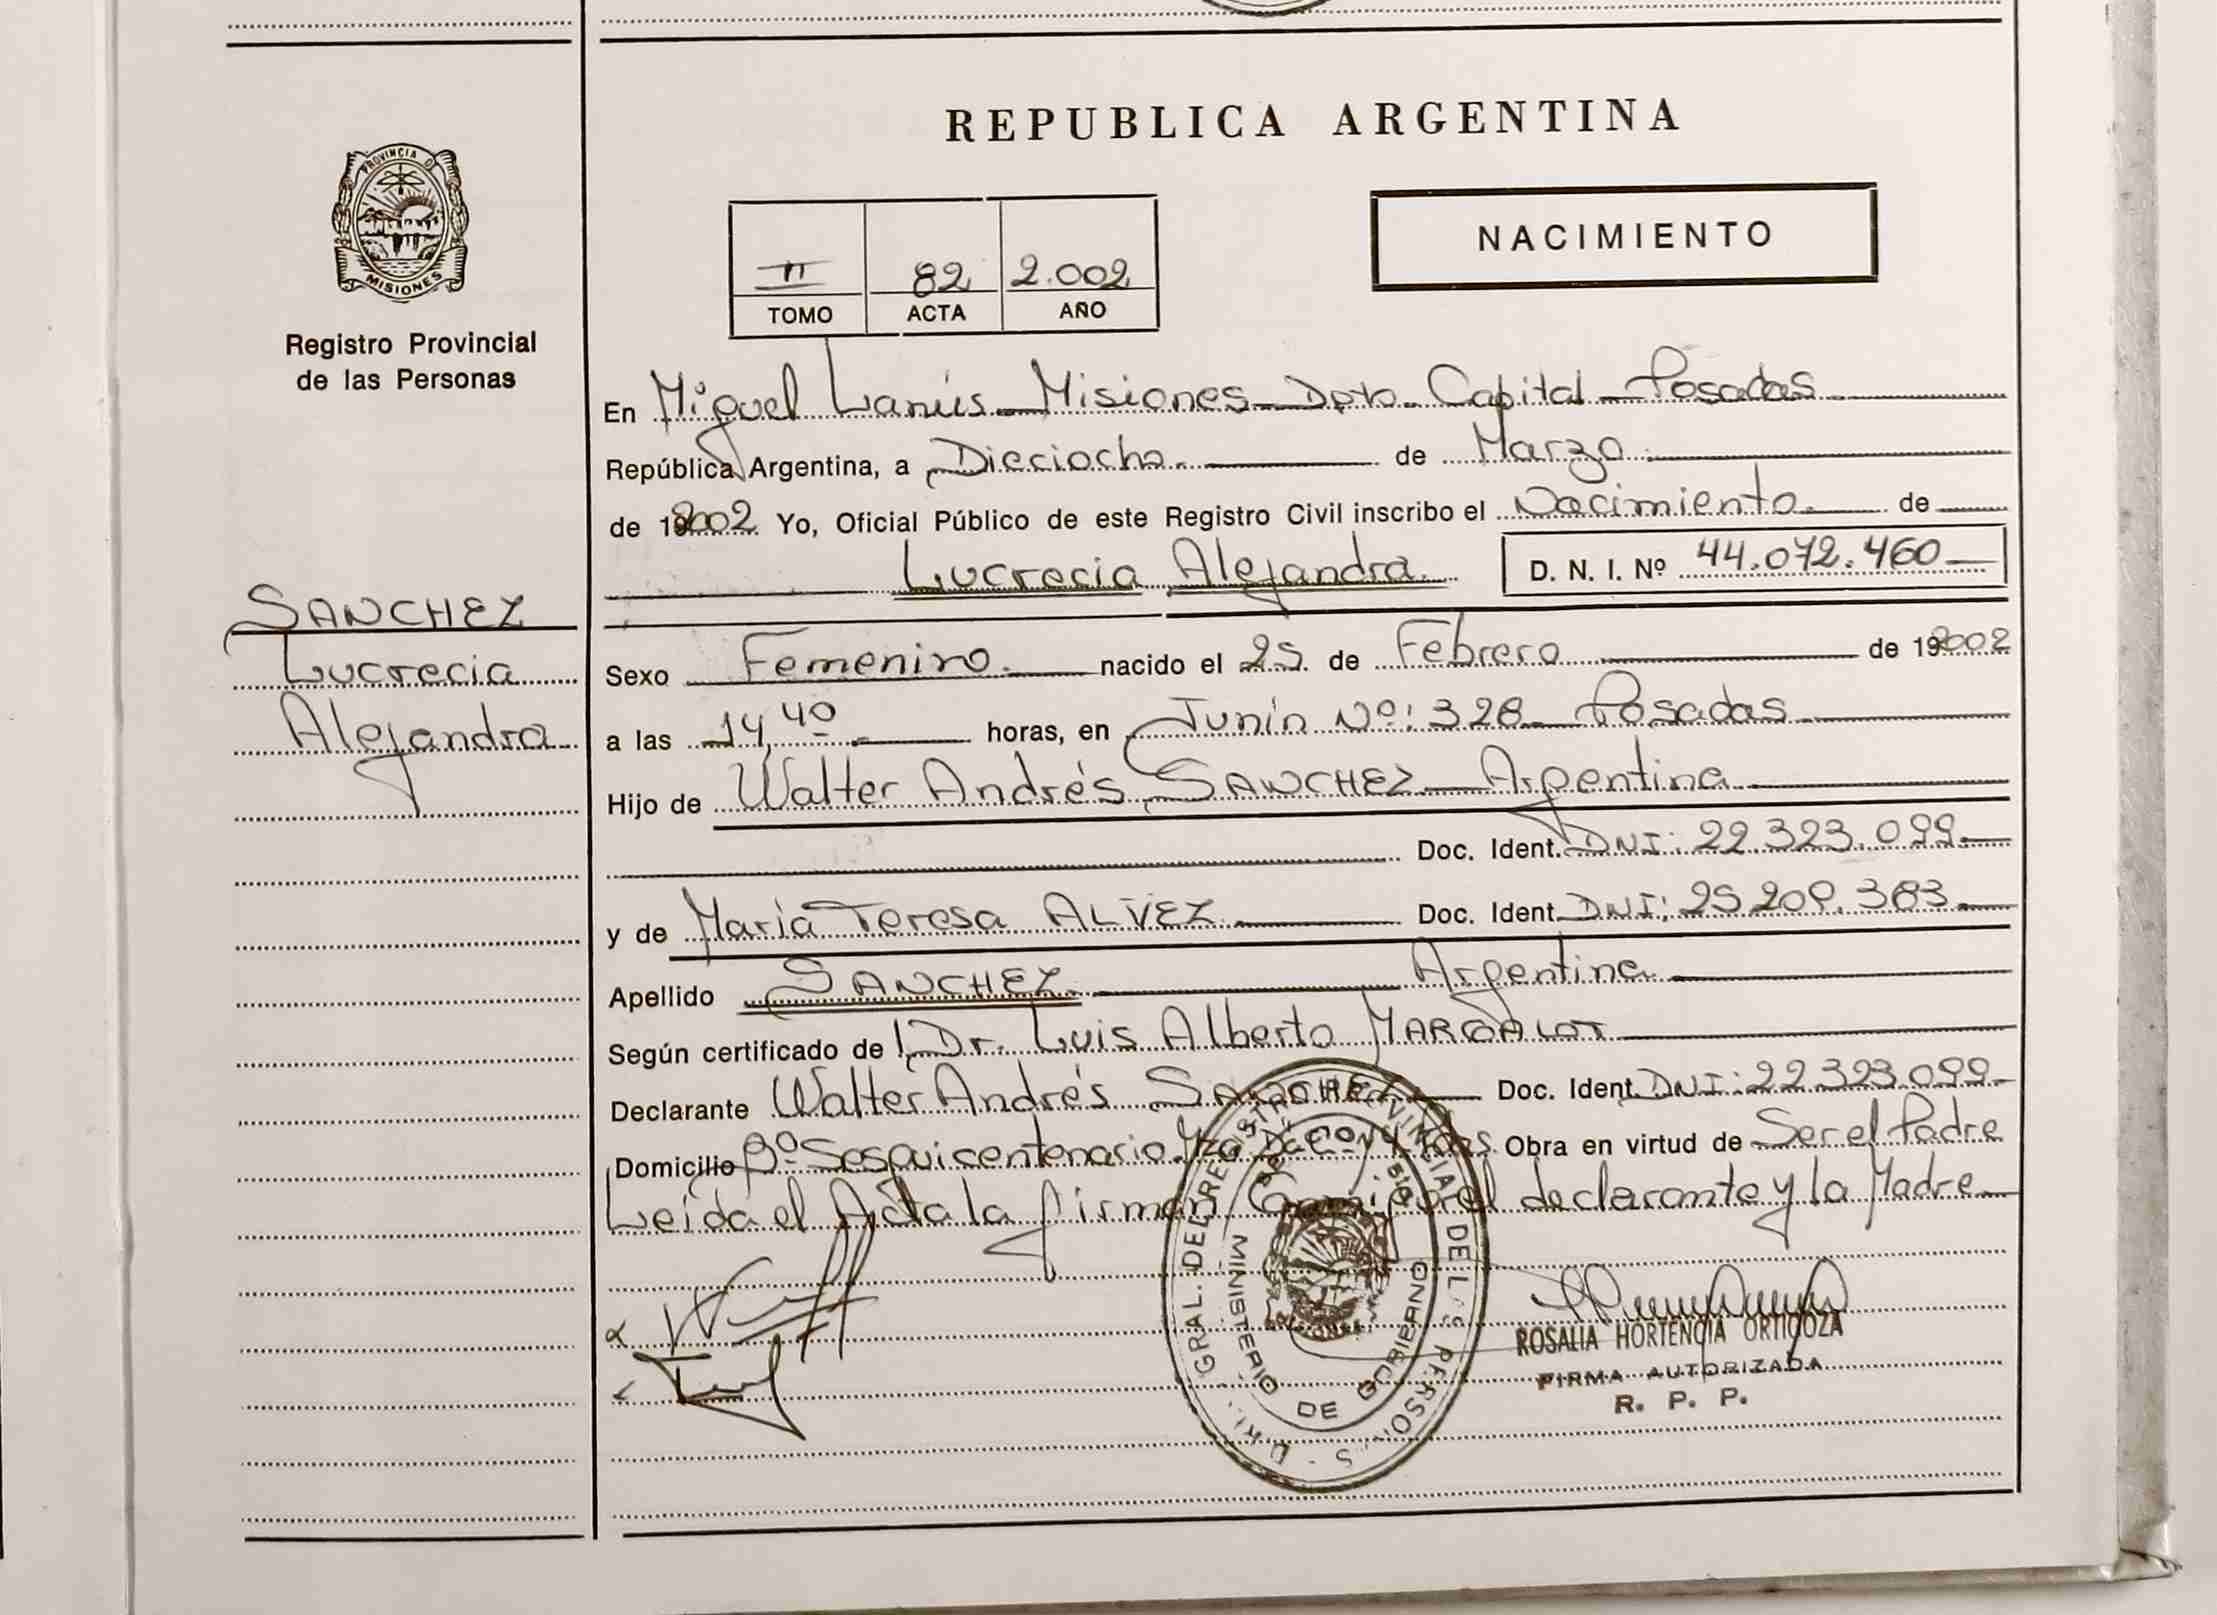 REPUBLICA ARGENTINA
PROVINCIA D
MISIONES
Registro Provincial
de las Personas
NACIMIENTO
II 82 2.002
TOMO ACTA AÑO
En Miguel Lanús - Misiones - Dpto. Capital - Posadas
República Argentina, a Dieciocho. de Marzo
de 2002 Yo, Oficial Público de este Registro Civil inscribo el Nacimiento. de
Lucrecia Alejandra. D. N. I. Nº 44.072.460
SANCHEZ
Lucrecia
Alejandra
Sexo Femenino. nacido el 25. de Febrero de 2002
a las 14,40 horas, en Junín Nº: 328 - Posadas
Hijo de Walter Andrés SANCHEZ - Argentina
Doc. Ident. DNI: 22.323.099
y de María Teresa ALVEZ Doc. Ident. DNI: 25.209.383
Apellido SANCHEZ Argentina
Según certificado de Dr. Luis Alberto
Declarante Walter Andrés SANCHEZ Doc. Ident. DNI: 22.323.099
Domicilio Bº Sesquicentenario Obra en virtud de Ser el Padre
Leída el Acta la firman Conmigo el declarante y la Madre
GRAL. DEL REGISTRO PROVINCIAL DE L S PERSON S
MINISTERIO DE GOBIERNO
ROSALIA HORTENCIA ORTIGOZA
FIRMA AUTORIZADA
R. P. P.